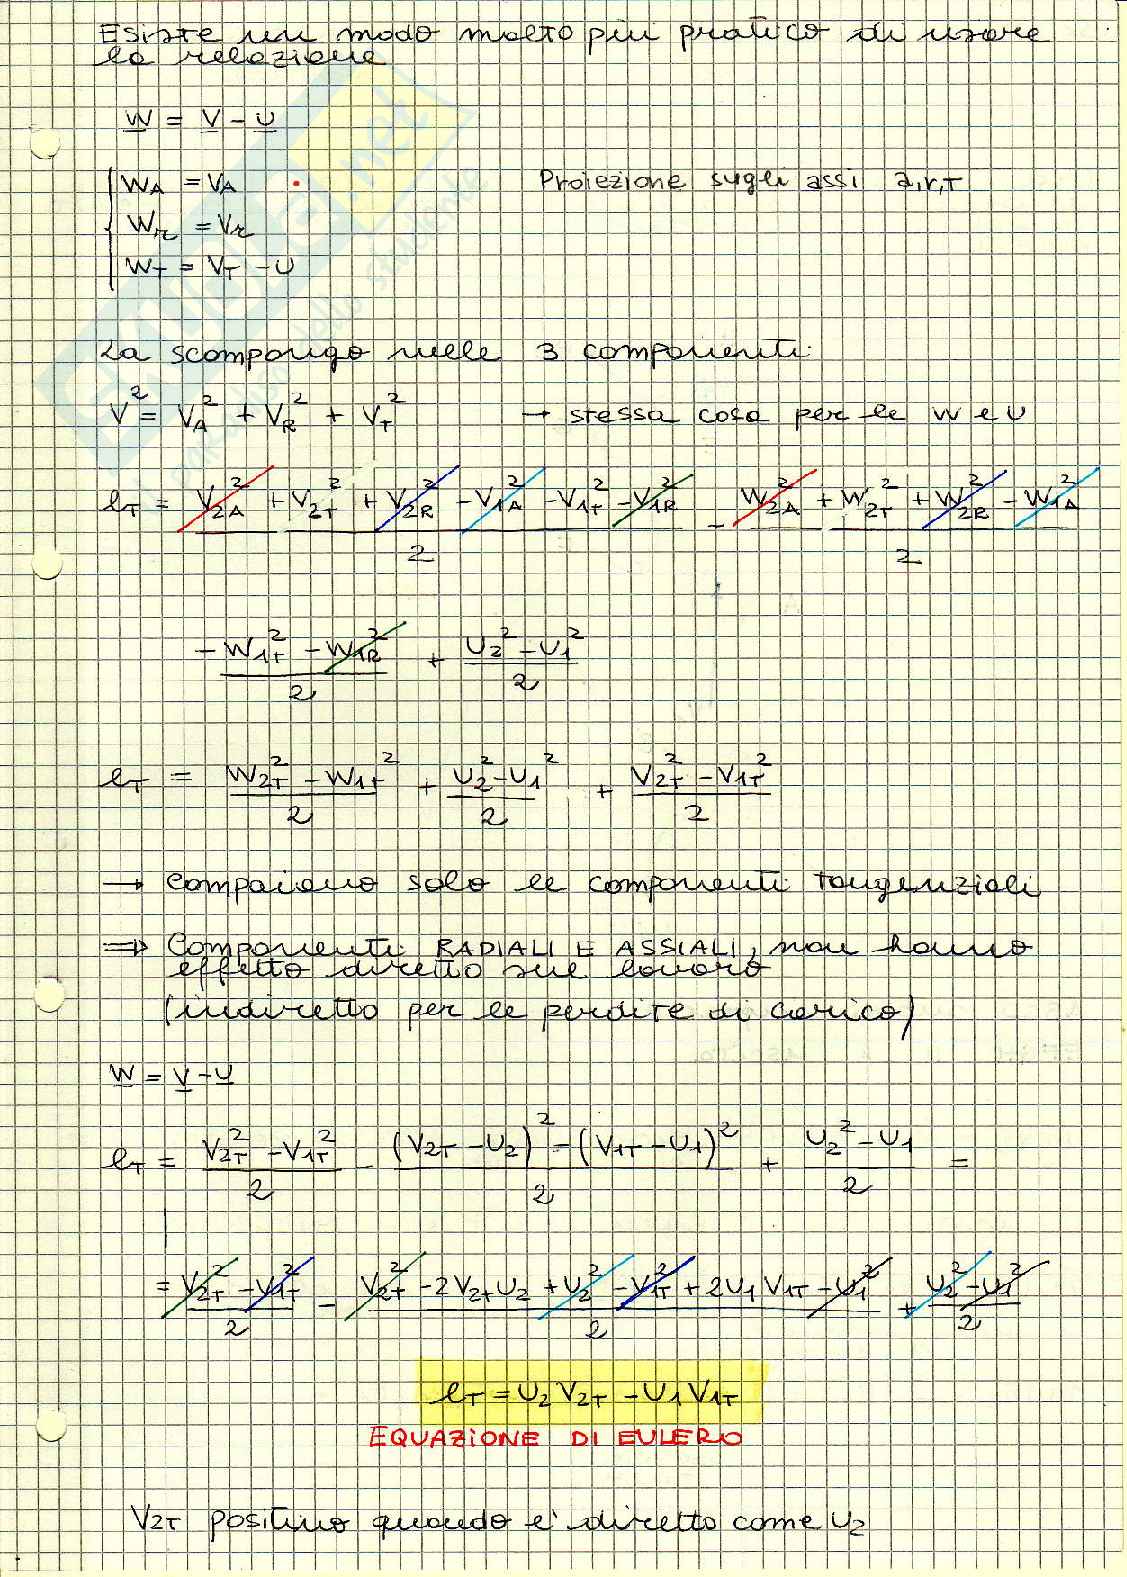 Esiste un modo molto più pratico di usare
la relazione
W = V - U
WA = VA
Proiezione sugli assi a,r,T
Wr = Vr
WT = VT - U
La scompongo nelle 3 componenti
V² = VA² + VR² + VT² → stessa cosa per le W e U
lT = V2A² + V2T² + V2R² - V1A² - V1T² - V1R² / 2 - W2A² + W2T² + W2R² - W1A² / 2
- W1T² - W1R² / 2 + U2² - U1² / 2
lT = W2T² - W1T² / 2 + U2² - U1² / 2 + V2T² - V1T² / 2
→ Compaiono solo le componenti tangenziali
⇒ Componenti RADIALI E ASSIALI, non hanno
effetto diretto sul lavoro
(indiretto per le perdite di carico)
W = V - U
lT = V2T² - V1T² / 2 - (V2T - U2)² - (V1T - U1)² / 2 + U2² - U1 / 2 =
= V2T² - V1T² / 2 - V2T² - 2V2T U2 + U2² - V1T² + 2U1 V1T - U1² / 2 + U2² - U1² / 2
lT = U2 V2T - U1 V1T
EQUAZIONE DI EULERO
V2T positivo quando è diretto come U2
.net